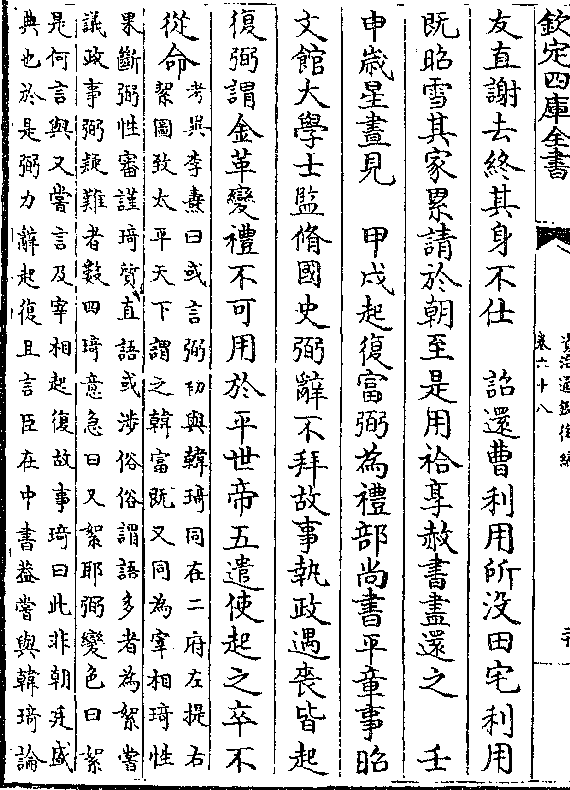 欽定四庫全書
資治通鑑後編
卷六十八
友直謝去終其身不仕　詔還曹利用所没田宅利用
既昭雪其家累請於朝至是用祫享赦書盡還之　壬
申嵗星晝見　甲戌起復富弼為禮部尚書平童事昭
文館大學士監脩國史弼辭不拜故事執政遇喪皆起
復弼謂金革變禮不可用於平世帝五遣使起之卒不
從命
考異李燾曰或言弼初與韓琦同在二府左提右
挈圖致太平天下謂之韓富既又同為宰相琦性
果斷弼性審謹琦質直語或涉俗俗謂語多者為絮嘗
議政事弼疑難者數四琦意急曰又絮耶弼變色曰絮
是何言與又嘗言及宰相起復故事琦曰此非朝廷盛
典也於是弼力辭起復且言臣在中書蓋嘗與韓琦論